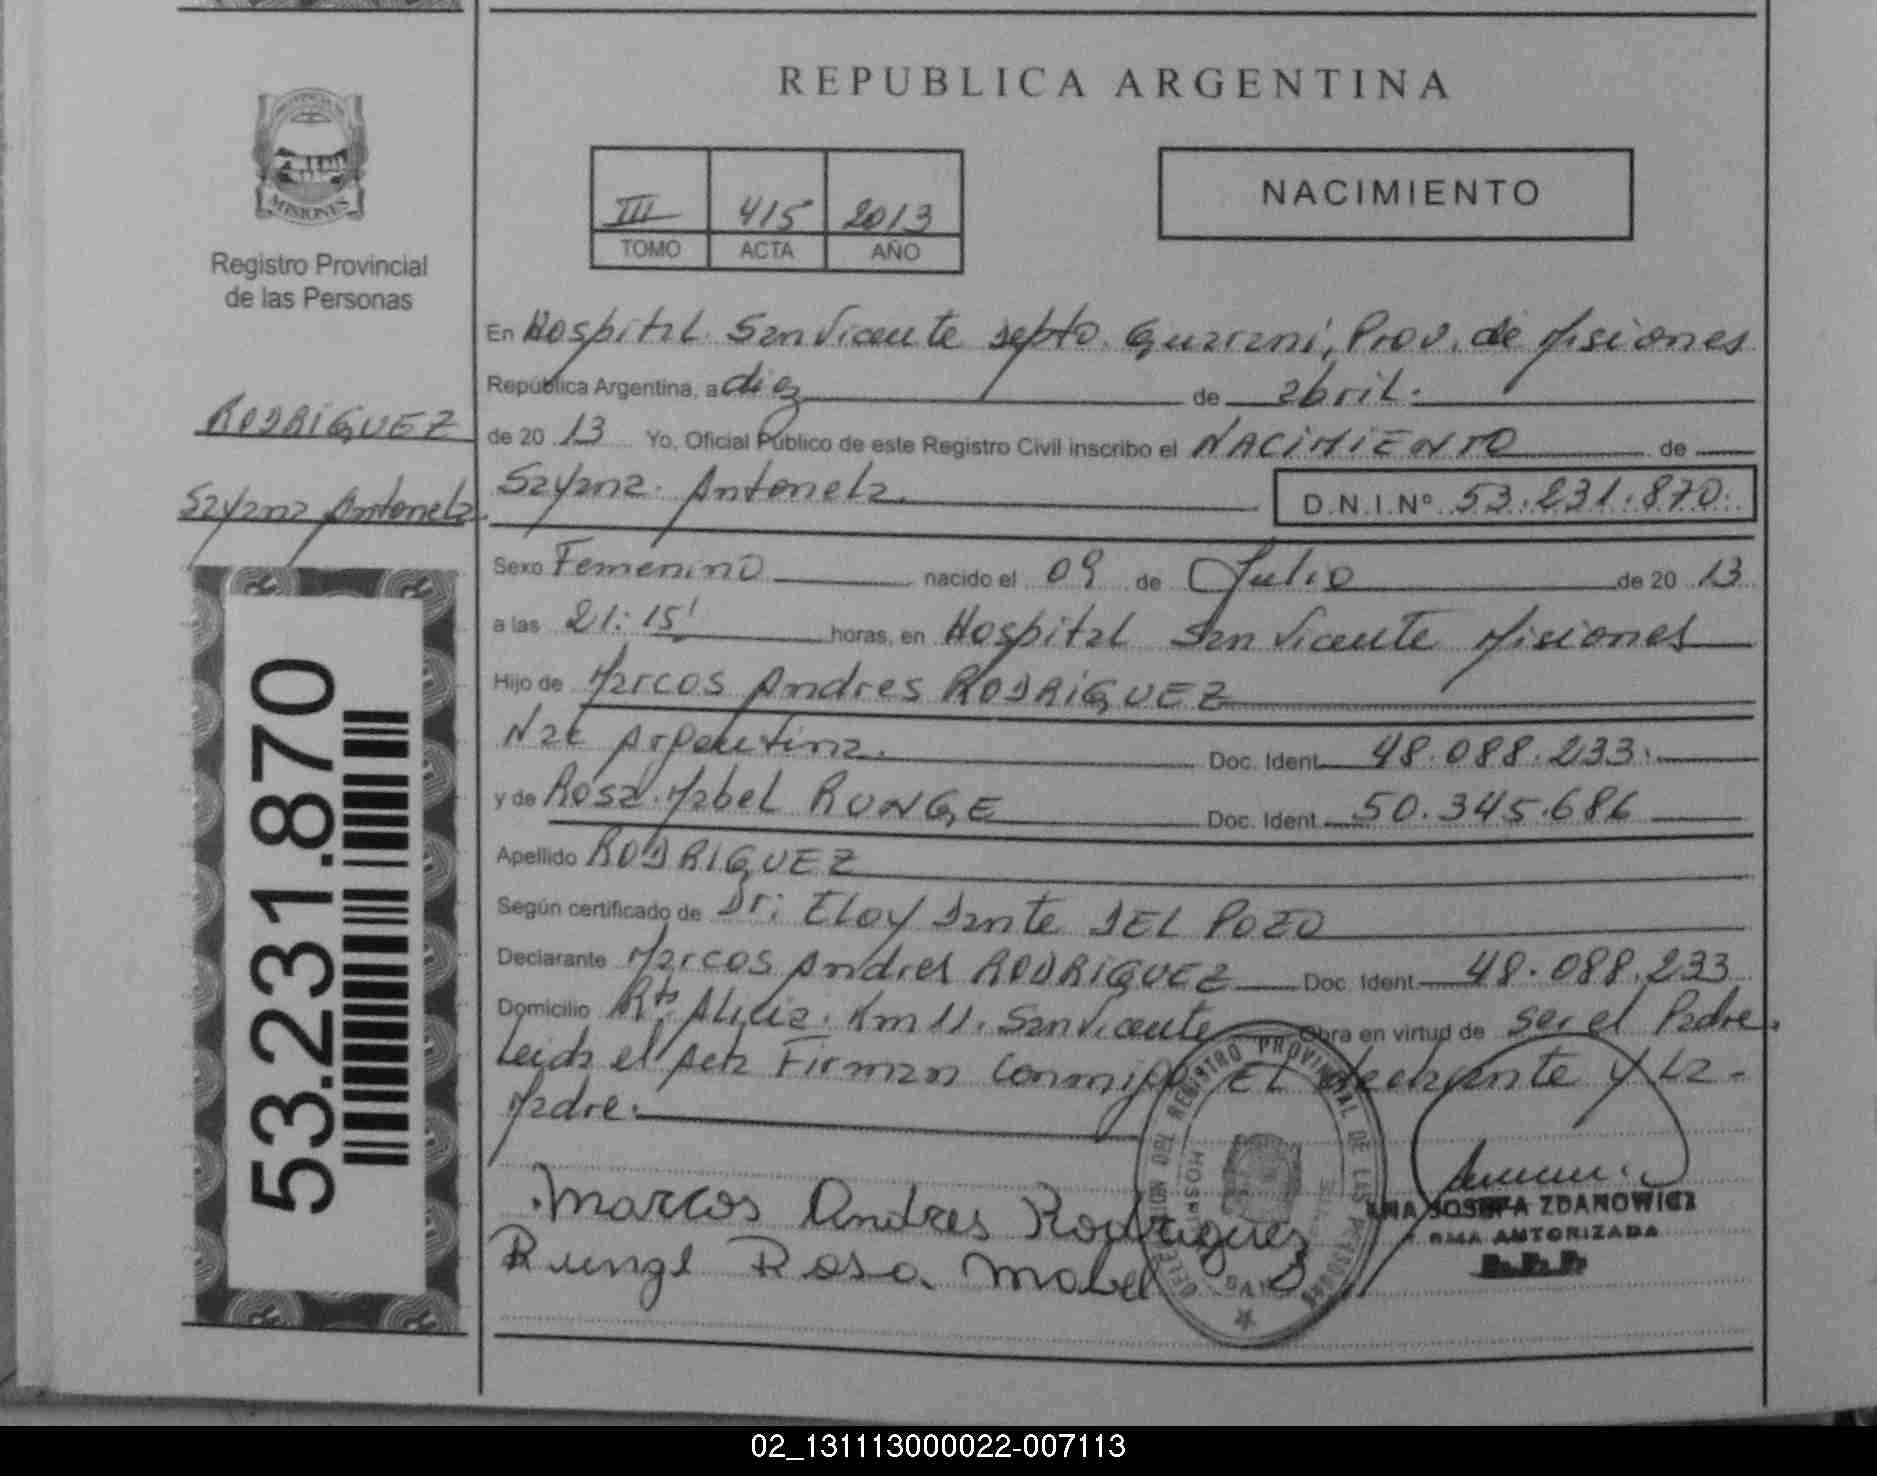 REPUBLICA ARGENTINA
PROVINCIA DE
MISIONES
III 415 2013
TOMO ACTA AÑO
NACIMIENTO
Registro Provincial
de las Personas
RODRIGUEZ
Sayana Antonela
53.231.870
En Hospital San Vicente Depto. Guarani, Prov. de Misiones
República Argentina, a diez de abril.
de 20 13 Yo, Oficial Público de este Registro Civil inscribo el NACIMIENTO de
Sayana Antonela. D.N.I.Nº 53.231.870.
Sexo Femenino nacido el 09 de Julio de 20 13
a las 21:15' horas, en Hospital San Vicente Misiones
Hijo de Marcos Andres RODRIGUEZ
Nac Argentina. Doc. Ident. 48.088.233.
y de Rosa Mabel RUNGE Doc. Ident. 50.345.686
Apellido RODRIGUEZ
Según certificado de Dr: Eloy Dante DEL POZO
Declarante Marcos Andres RODRIGUEZ Doc. Ident. 48.088.233
Domicilio Alicia. Km 11. San Vicente Obra en virtud de ser el Padre.
Leida el Acta Firman conmigo El declarante y La-
Madre.
DELEGACION DEL REGISTRO PROVINCIAL DE LAS PERSONAS
Marcos Andres Rodriguez
Runge Rosa Mabel
ANA JOSEFA ZDANOWICZ
FIRMA AUTORIZADA
R.P.P
02_131113000022-007113